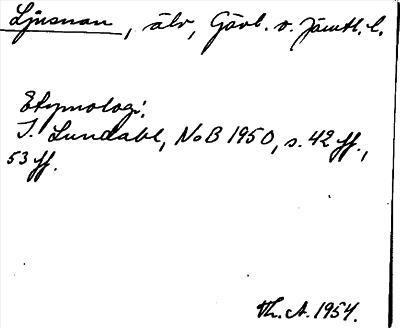 Ljusnan, älv, Gävl. o. Jämtl. l.
Etymologi:
I. Lundahl, NoB 1950, s. 42 ff.,
53 ff.
Th. A. 1954.